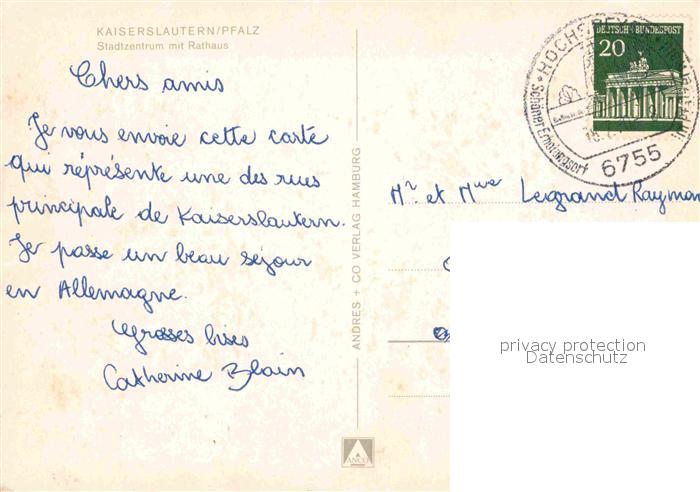 KAISERSLAUTERN/PFALZ
Stadtzentrum mit Rathaus
Chers amis
Je vous envoie cette carte
qui représente une des rues
principale de Kaiserslautern.
Je passe un beau séjour
en Allemagne.
Grosses bises
Catherine Blain
ANDRES + CO VERLAG HAMBURG
ANCO
DEUTSCHE BUNDESPOST
20
HOCHSPEYER
Schöner Erholungsort
6755
Mr et Mme Legrand Raymon
privacy protection
Datenschutz